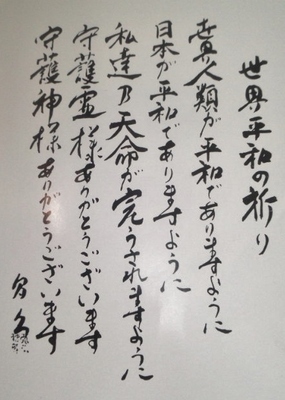 世界平和の祈り
世界人類が平和でありますように
日本が平和でありますように
私達乃天命が完うされますように
守護霊様ありがとうございます
守護神様ありがとうございます
昌久